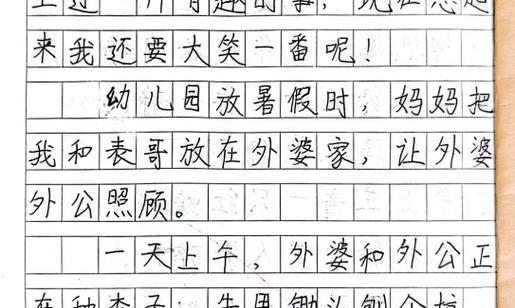 有趣的事，现在想起
来我还要大笑一番呢！
幼儿园放暑假时，妈妈把
我和表哥放在外婆家，让外婆
外公照顾。
一天上午，外婆和外公正
在种 先用锄头刨个坑